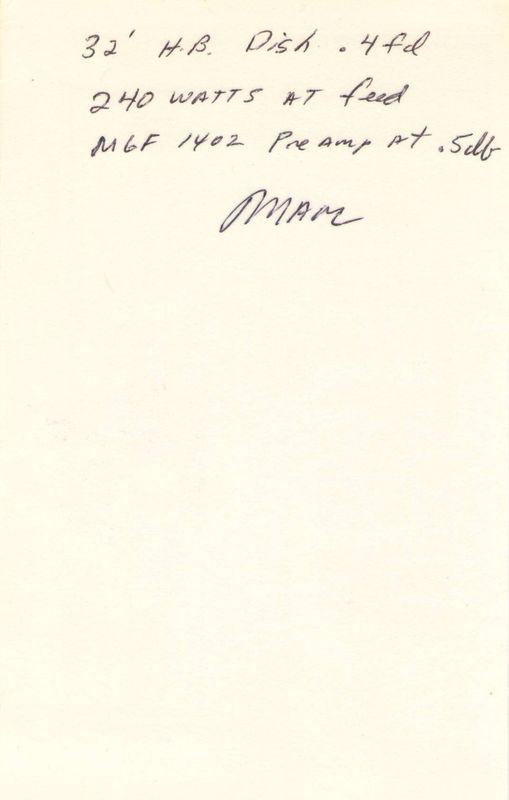 32' H.B. Dish .4 fd
240 WATTS AT feed
MGF 1402 PreAmp At .5db